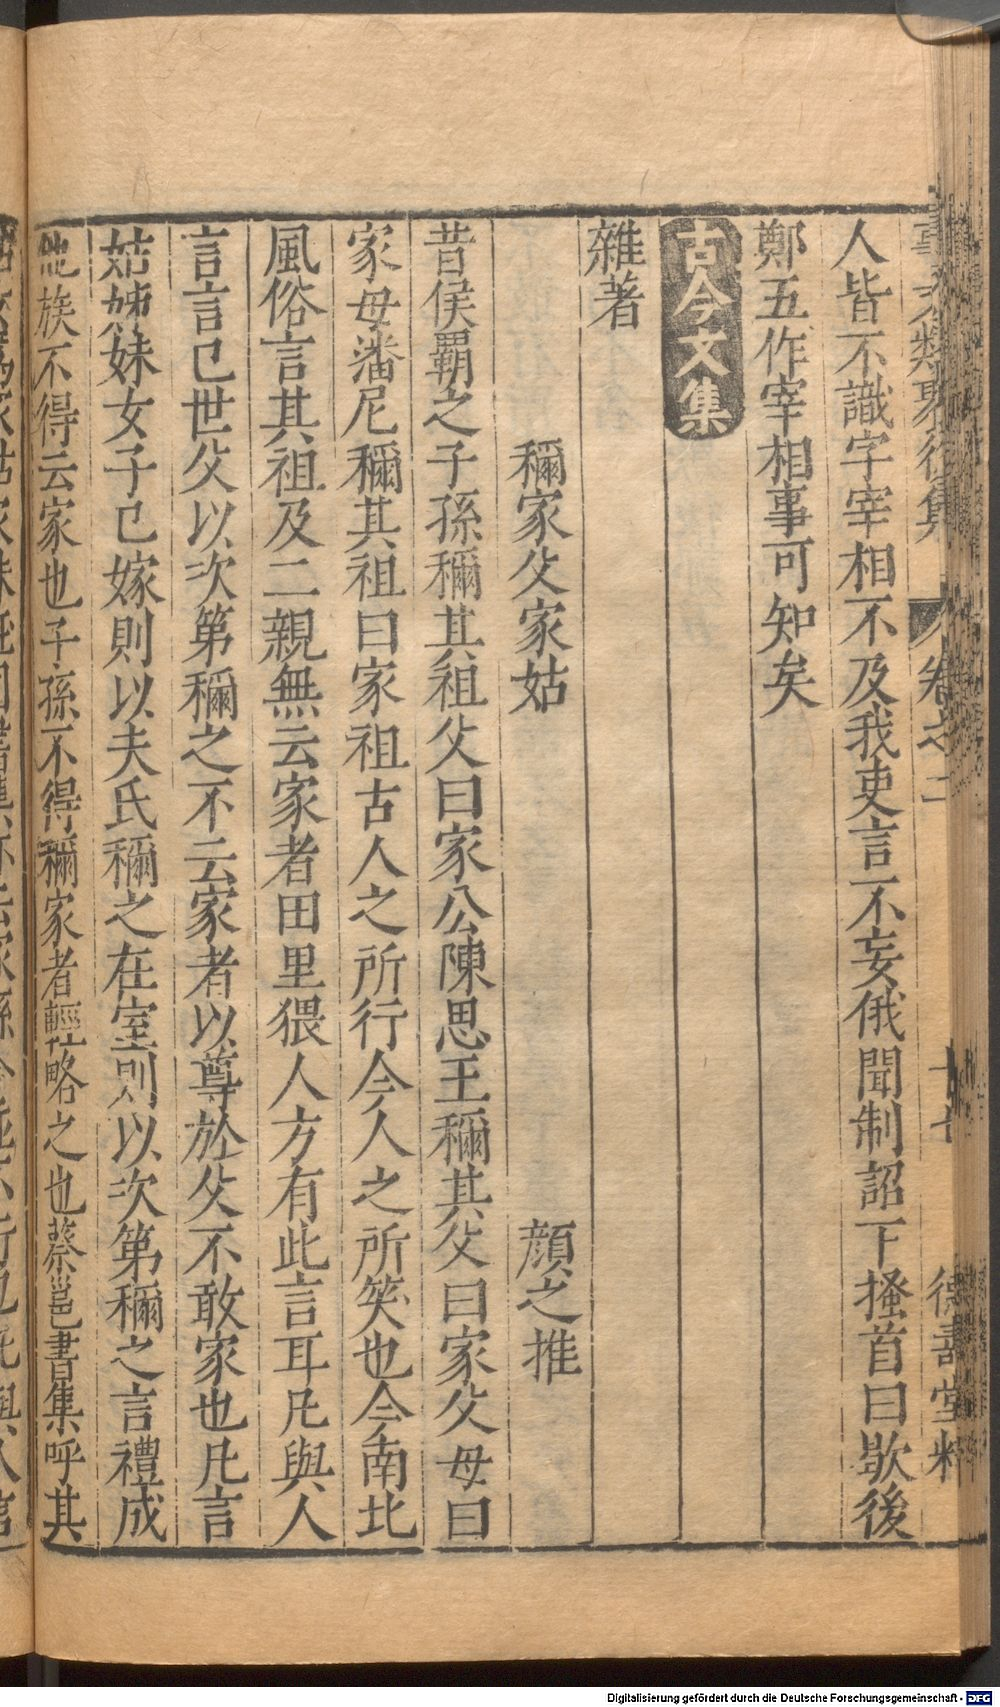 事文類聚後集 卷之二 十七 德壽堂梓
人皆不識字宰相不及我吏言不妄俄聞制詔下搔首曰歇後
鄭五作宰相事可知矣
古今文集
雜著
稱家父家姑 顔之推
昔侯霸之子孫稱其祖父曰家公陳思王稱其父曰家父母曰
家母潘尼稱其祖曰家祖古人之所行今人之所笑也今南北
風俗言其祖及二親無云家者田里猥人方有此言耳凡與人
言言已世父以次第稱之不云家者以尊於父不敢家也凡言
姑姊妹女子已嫁則以夫氏稱之在室則以次第稱之言禮成
他族不得云家也子孫不得稱家者輕略之也蔡邕書集呼其
Digitalisierung gefördert durch die Deutsche Forschungsgemeinschaft - DFG